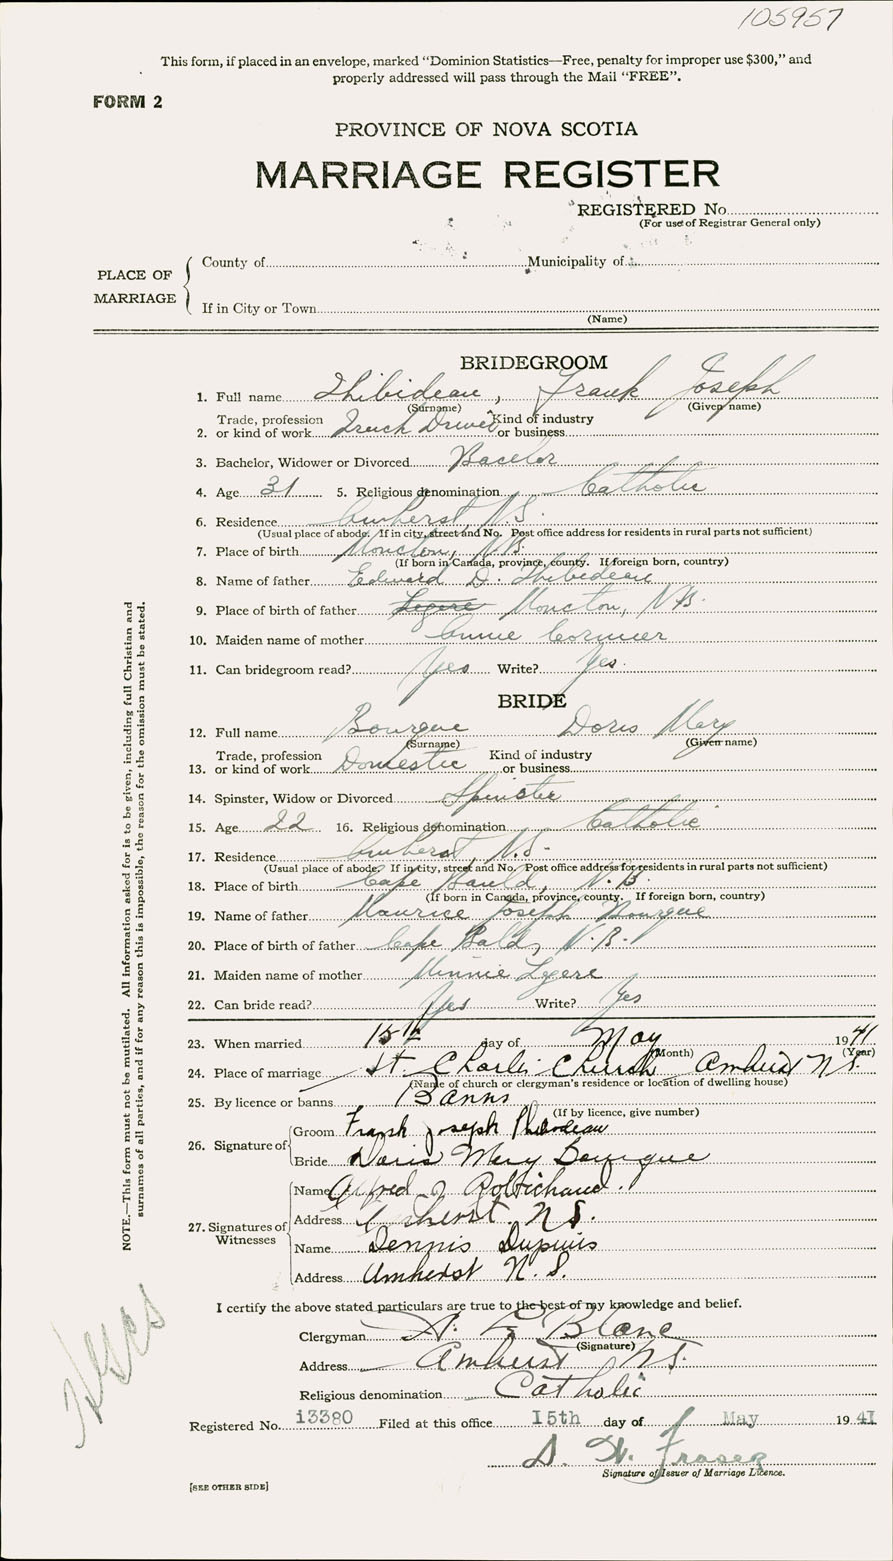 105957
This form, if placed in an envelope, marked “Dominion Statistics—Free, penalty for improper use $300,” and
properly addressed will pass through the Mail “FREE”.
FORM 2
PROVINCE OF NOVA SCOTIA
MARRIAGE REGISTER
REGISTERED No.
(For use of Registrar General only)
PLACE OF MARRIAGE
County of Municipality of
If in City or Town
(Name)
BRIDEGROOM
1. Full name Thibideau, Frank Joseph
(Surname) (Given name)
Trade, profession Kind of industry
2. or kind of work Truck Driver or business
3. Bachelor, Widower or Divorced Bacelor
4. Age 31 5. Religious denomination Catholic
6. Residence Amherst, N.S.
(Usual place of abode. If in city, street and No. Post office address for residents in rural parts not sufficient)
7. Place of birth Moncton, N.B.
(If born in Canada, province, county. If foreign born, country)
8. Name of father Edward D. Thibideau
9. Place of birth of father Legere Moncton, N.B.
10. Maiden name of mother Annie Cormier
11. Can bridegroom read? Yes Write? Yes.
BRIDE
12. Full name Bourque Doris Mary
(Surname) (Given name)
Trade, profession Kind of industry
13. or kind of work Domestic or business
14. Spinster, Widow or Divorced Spinster
15. Age 22 16. Religious denomination Catholic
17. Residence Amherst, N.S.
(Usual place of abode. If in city, street and No. Post office address for residents in rural parts not sufficient)
18. Place of birth Cape Bauld, N.B.
(If born in Canada, province, county. If foreign born, country)
19. Name of father Maurice Joseph Bourque
20. Place of birth of father Cape Bald, N.B.
21. Maiden name of mother Minnie Lgere
22. Can bride read? Yes Write? Yes
23. When married 15th day of May 1941
(Month) (Year)
24. Place of marriage St. Charles Church Amherst N.S.
(Name of church or clergyman's residence or location of dwelling house)
25. By licence or banns Banns
(If by licence, give number)
26. Signature of
Groom Frank Joseph
Bride Doris Mary Bourgue
27. Signatures of Witnesses
Name Alfred J Robichaud.
Address Amherst. N.S.
Name Dennis Dupuis
Address Amherst N.S.
I certify the above stated particulars are true to the best of my knowledge and belief.
Clergyman Blanc
(Signature)
Address Amherst N.S.
Religious denomination Catholic
Registered No. 13380 Filed at this office 15th day of May 1941
Fraser
Signature of Issuer of Marriage Licence.
[SEE OTHER SIDE]
NOTE.—This form must not be mutilated. All information asked for is to be given, including full Christian and
surnames of all parties, and if for any reason this is impossible, the reason for the omission must be stated.